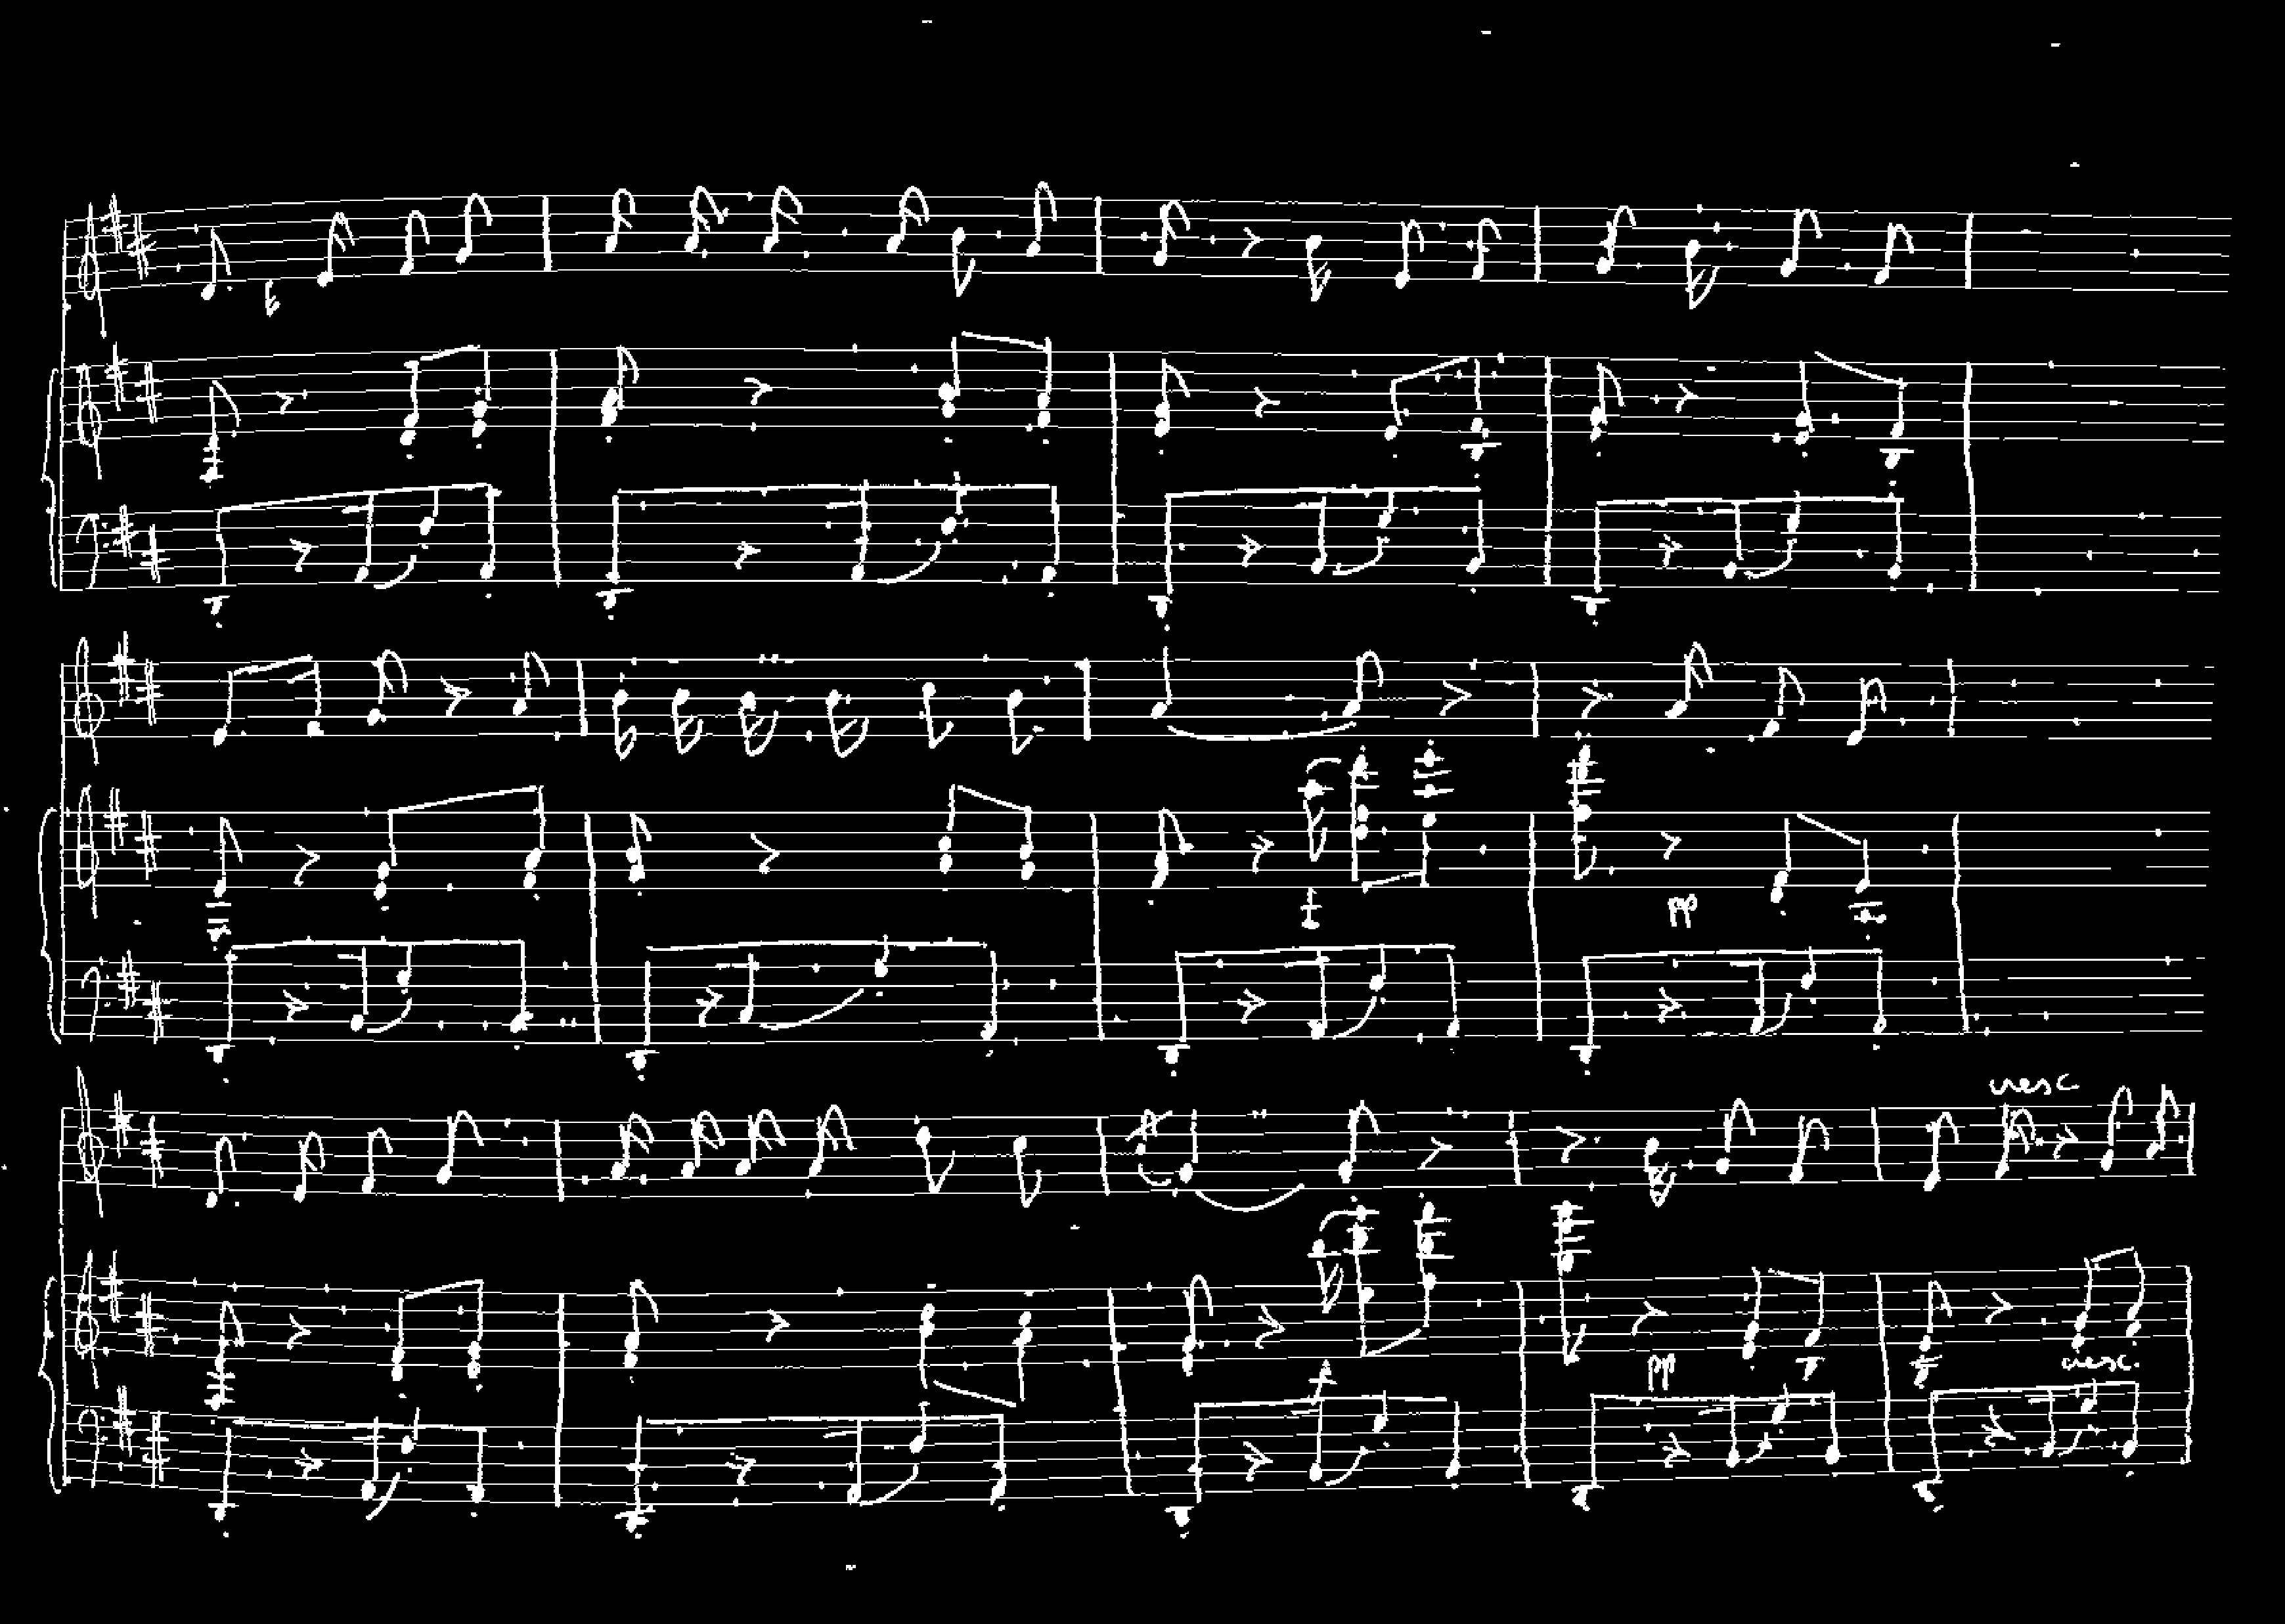 pp
cresc
pp
cresc.